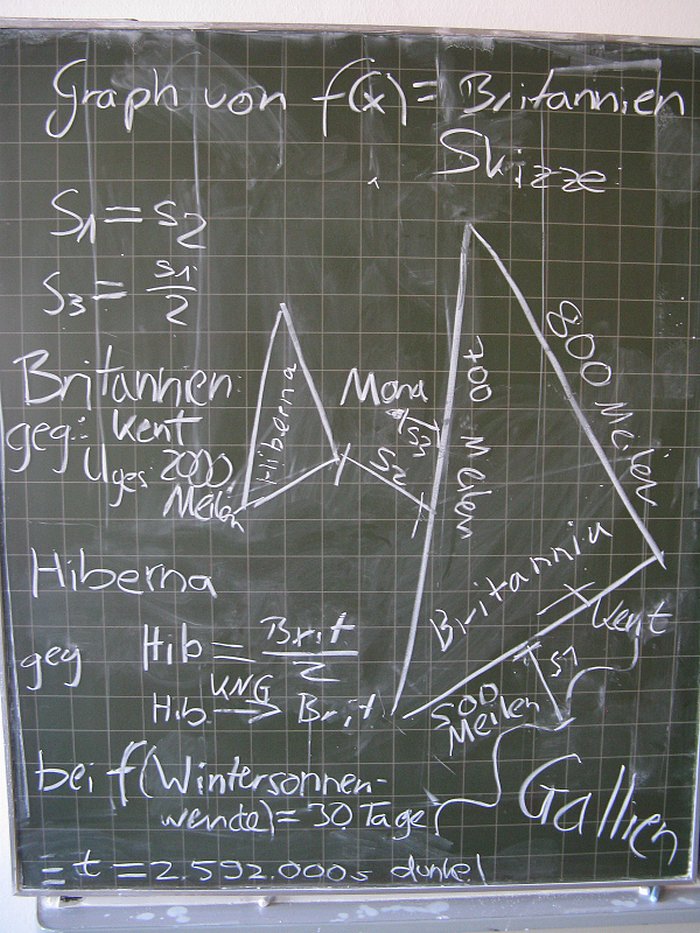 Graph von f(x) = Britannien
Skizze
S1 = S2
S3 = S1/2
Britannien:
geg: Kent
Uges 2000
Meilen
Hiberna
Mona
S3
S2
700 Meilen
800 Meilen
Britannia
Kent
S1
500
Meilen
Gallien
Hiberna
geg Hib = Brit/2
Hib KNG → Brit
bei f(Wintersonnen-
wende) = 30 Tage
= t = 2.592.000s dunkel